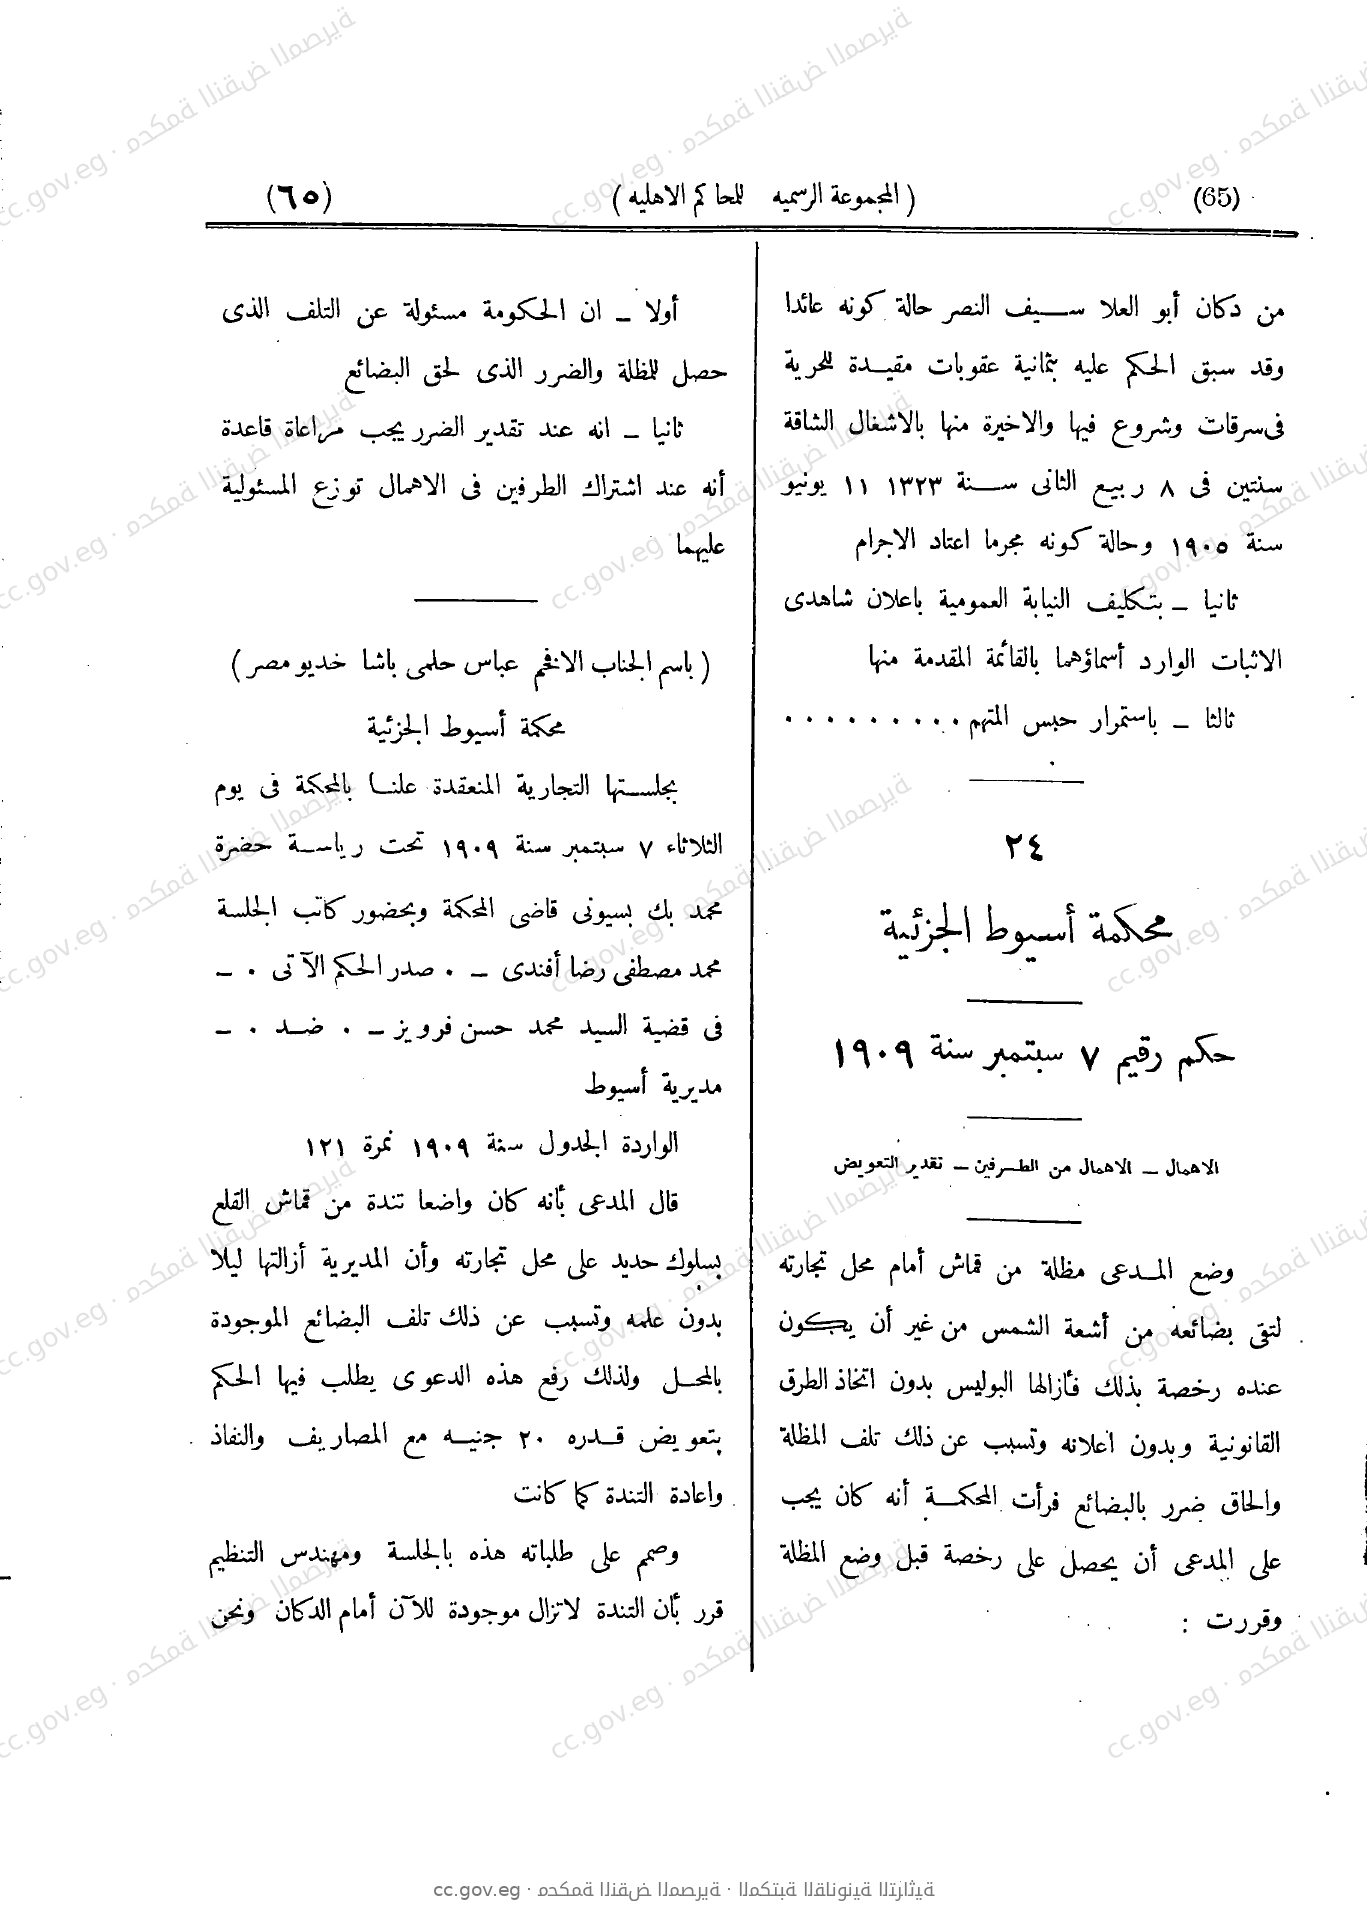 (65) ( المجموعة الرسميه للمحاكم الاهليه ) (٦٥)
من دكان أبو العلا سيف النصر حالة كونه عائدا
وقد سبق الحكم عليه بثمانية عقوبات مقيدة للحرية
فى سرقات وشروع فيها والاخيرة منها بالاشغال الشاقة
سنتين فى ٨ ربيع الثانى سنة ١٣٢٣ ١١ يونيو
سنة ١٩٠٥ وحالة كونه مجرما اعتاد الاجرام
ثانيا ـ بتكليف النيابة العمومية باعلان شاهدى
الاثبات الوارد أسماؤهما بالقائمة المقدمة منها
ثالثا ـ باستمرار حبس المتهم . . . . . . . . . .
٢٤
محكمة أسيوط الجزئية
حكم رقيم ٧ سبتمبر سنة ١٩٠٩
الاهمال ـ الاهمال من الطرفين ـ تقدير التعويض
وضع المدعى مظلة من قماش أمام محل تجارته
لتقى بضائعه من أشعة الشمس من غير أن يكون
عنده رخصة بذلك فأزالها البوليس بدون اتخاذ الطرق
القانونية وبدون اعلانه وتسبب عن ذلك تلف المظلة
والحاق ضرر بالبضائع فرأت المحكمة أنه كان يجب
على المدعى أن يحصل على رخصة قبل وضع المظلة
وقررت :
أولا ـ ان الحكومة مسئولة عن التلف الذى
حصل للمظلة والضرر الذى لحق البضائع
ثانيا ـ انه عند تقدير الضرر يجب مراعاة قاعدة
أنه عند اشتراك الطرفين فى الاهمال توزع المسئولية
عليهما
( باسم الجناب الافخم عباس حلمى باشا خديو مصر )
محكمة أسيوط الجزئية
بجلستها التجارية المنعقدة علنا بالمحكمة فى يوم
الثلاثاء ٧ سبتمبر سنة ١٩٠٩ تحت رياسة حضرة
محمد بك بسيونى قاضى المحكمة وبحضور كاتب الجلسة
محمد مصطفى رضا أفندى ـ . صدر الحكم الآتى . ـ
فى قضية السيد محمد حسن فرويز ـ . ضد . ـ
مديرية أسيوط
الواردة الجدول سنة ١٩٠٩ نمرة ١٢١
قال المدعى بأنه كان واضعا تندة من قماش القلع
بسلوك حديد على محل تجارته وأن المديرية أزالتها ليلا
بدون علمه وتسبب عن ذلك تلف البضائع الموجودة
بالمحل ولذلك رفع هذه الدعوى يطلب فيها الحكم
بتعويض قدره ٢٠ جنيه مع المصاريف والنفاذ
واعادة التندة كما كانت
وصمم على طلباته هذه بالجلسة ومهندس التنظيم
قرر بأن التندة لاتزال موجودة للآن أمام الدكان ونحن
cc.gov.eg · محكمة النقض المصرية · المكتبة القانونية التراثية